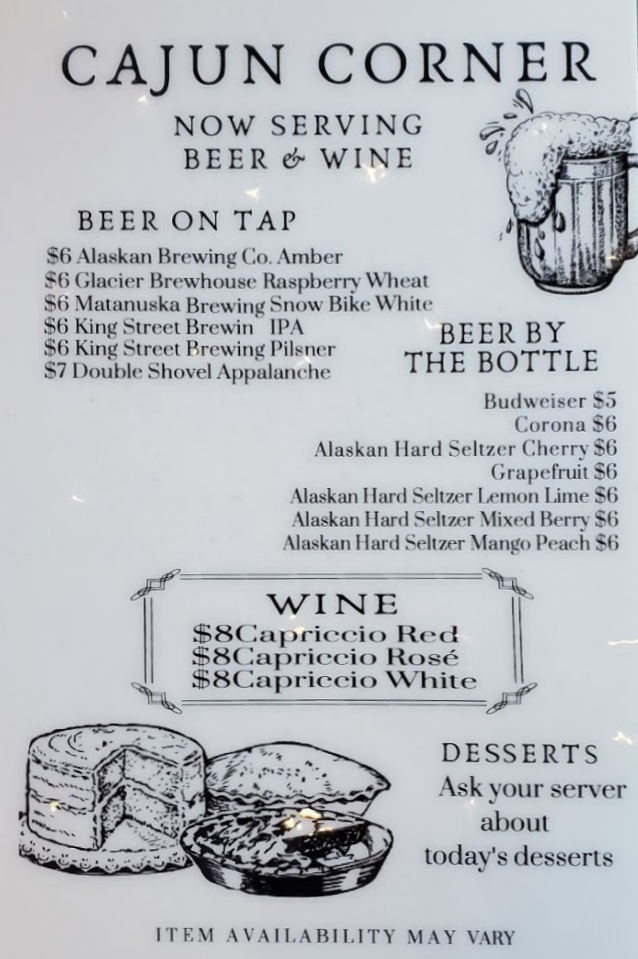 CAJUN CORNER
NOW SERVING
BEER & WINE
BEER ON TAP
$6 Alaskan Brewing Co. Amber
$6 Glacier Brewhouse Raspberry Wheat
$6 Matanuska Brewing Snow Bike White
$6 King Street Brewin IPA
$6 King Street Brewing Pilsner
$7 Double Shovel Appalanche
BEER BY
THE BOTTLE
Budweiser $5
Corona $6
Alaskan Hard Seltzer Cherry $6
Grapefruit $6
Alaskan Hard Seltzer Lemon Lime $6
Alaskan Hard Seltzer Mixed Berry $6
Alaskan Hard Seltzer Mango Peach $6
WINE
$8Capriccio Red
$8Capriccio Rosé
$8Capriccio White
DESSERTS
Ask your server
about
today's desserts
ITEM AVAILABILITY MAY VARY